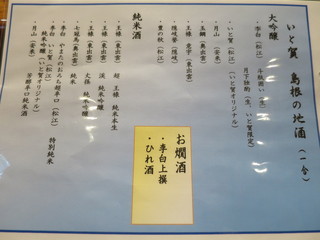 いと賀 島根の地酒 (一合)
大吟醸
・李白(松江)
月下独酌(生、いと賀限定)
・いと賀(松江)
・月山(安来)(いと賀オリジナル)
・玉鋼(奥出雲)
・王禄 意宇(東出雲)
・隠岐誉(隠岐)
・豊の秋(松江)
純米酒
・王禄(東出雲) 超 王禄 純米本生
・王禄(東出雲) 渓 純米吟醸
・王禄(東出雲) 丈径 純米吟醸
・七冠馬(奥出雲) 純米
・李白 やまたのおろち超辛口(松江) 特別純米
・李白 いと賀(松江)
純米吟醸(いと賀オリジナル)
・月山(安来) 芳醇辛口純米酒
お燗酒
・李白上撰
・ひれ酒